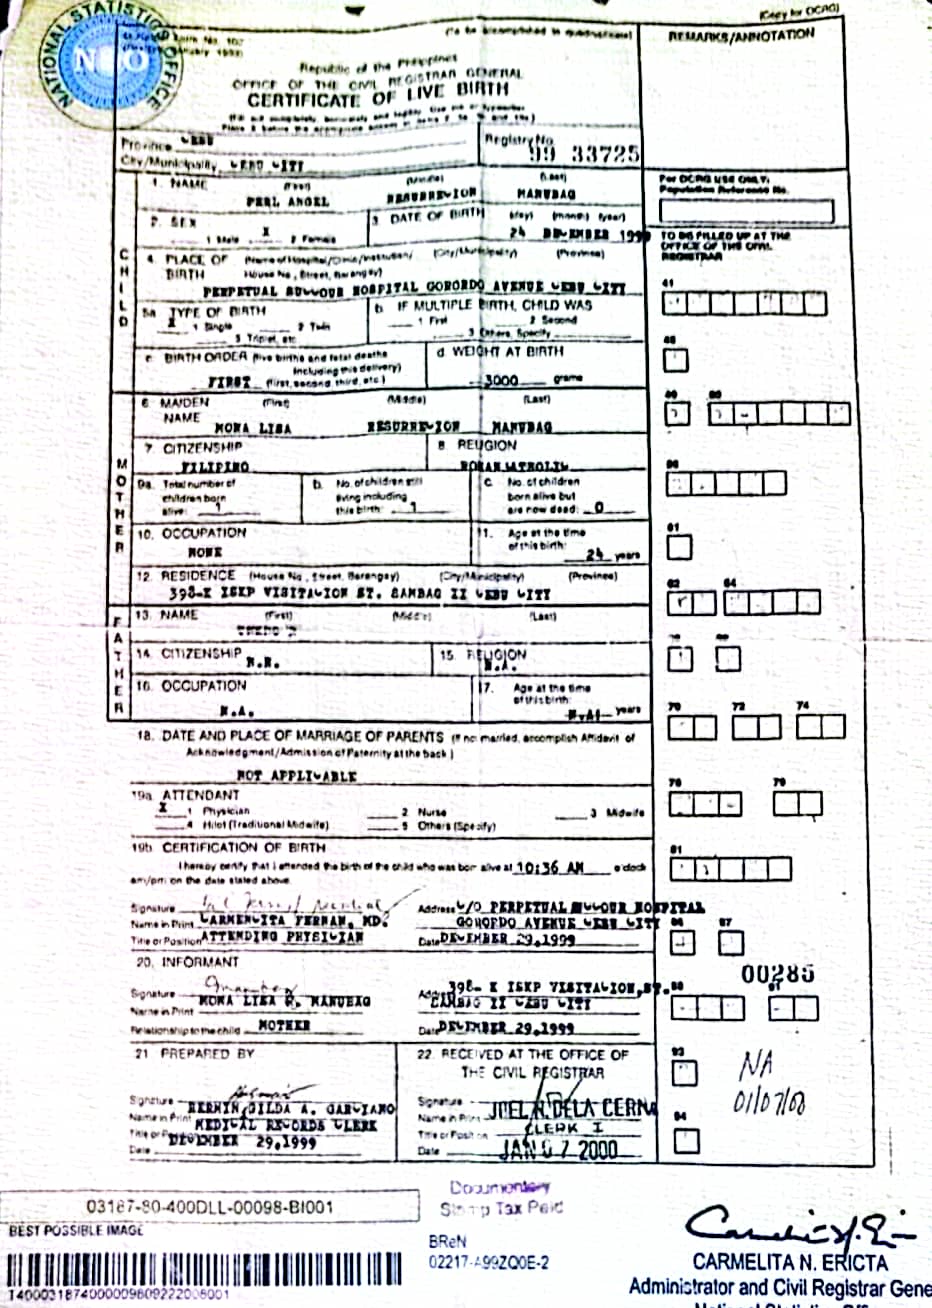 (Copy for OCRG)
(To be accomplished in quadruplicate)
REMARKS/ANNOTATION
NATIONAL STATISTICS OFFICE
NSO
Republic of the Philippines
OFFICE OF THE CIVIL REGISTRAR GENERAL
CERTIFICATE OF LIVE BIRTH
Province CEBU
City/Municipality CEBU CITY
Registry No. 99 33725
For OCRG USE ONLY:
Population Reference No.
CHILD
1. NAME (First) (Middle) (Last)
PERL ANGEL RESURRECCION MANUBAG
2. SEX
1 Male X 2 Female
3. DATE OF BIRTH (day) (month) (year)
24 DECEMBER 1999
TO BE FILLED UP AT THE
OFFICE OF THE CIVIL
REGISTRAR
4. PLACE OF BIRTH (Name of Hospital/Clinic/Institution/ (City/Municipality) (Province)
House No., Street, Barangay)
PERPETUAL SUCCOUR HOSPITAL GORORDO AVENUE CEBU CITY
41
5a TYPE OF BIRTH
X 1 Single 2 Twin
3 Triplet, etc.
b. IF MULTIPLE BIRTH, CHILD WAS
1 First 2 Second
3 Others, Specify
c. BIRTH ORDER (live births and fetal deaths
including this delivery)
FIRST (first, second, third, etc.)
d WEIGHT AT BIRTH
3000 grams
MOTHER
6. MAIDEN NAME (First) (Middle) (Last)
MONA LISA RESURRECCION MANUBAG
7. CITIZENSHIP
FILIPINO
8. RELIGION
ROMAN CATHOLIC
9a. Total number of
children born
alive: 1
b. No. of children still
living including
this birth: 1
c. No. of children
born alive but
are now dead: 0
10. OCCUPATION
NONE
11. Age at the time
of this birth: 24 years
61
12. RESIDENCE (House No., Street, Barangay) (City/Municipality) (Province)
398-K ISKP VISITACION ST. SAMBAG II CEBU CITY
62 64
FATHER
13. NAME (First) (Middle) (Last)
14. CITIZENSHIP
N.A.
15. RELIGION
N.A.
16. OCCUPATION
N.A.
17. Age at the time
of this birth: N.A. years
70 72 74
18. DATE AND PLACE OF MARRIAGE OF PARENTS (If not married, accomplish Affidavit of
Acknowledgment/Admission of Paternity at the back.)
NOT APPLICABLE
19a. ATTENDANT
X 1 Physician 2 Nurse 3 Midwife
4 Hilot (Traditional Midwife) 5 Others (Specify)
19b. CERTIFICATION OF BIRTH
I hereby certify that I attended the birth of the child who was born alive at 10:36 AM o'clock
am/pm on the date stated above.
81
Signature
Name in Print CARMENCITA FERNAN, MD.
Title or Position ATTENDING PHYSICIAN
Address C/O PERPETUAL SUCCOUR HOSPITAL
GORORDO AVENUE CEBU CITY
Date DECEMBER 29,1999
86 87
20. INFORMANT
00285
Signature
Name in Print MONA LISA R. MANUBAG
Relationship to the child MOTHER
Address 398- K ISKP VISITACION, ST.
SAMBAG II CEBU CITY
Date DECEMBER 29,1999
21 PREPARED BY
Signature
Name in Print HERMINGILDA A. GARCIANO
Title or Position MEDICAL RECORDS CLERK
Date DECEMBER 29,1999
22. RECEIVED AT THE OFFICE OF
THE CIVIL REGISTRAR
Signature
Name in Print JOEL R. DELA CERNA
Title or Position CLERK I
Date JAN 07 2000
93
94
NA
01/07/00
03187-80-400DLL-00098-BI001
BEST POSSIBLE IMAGE
Documentary
Stamp Tax Paid
BReN
02217-A99ZQ0E-2
CARMELITA N. ERICTA
Administrator and Civil Registrar Gene